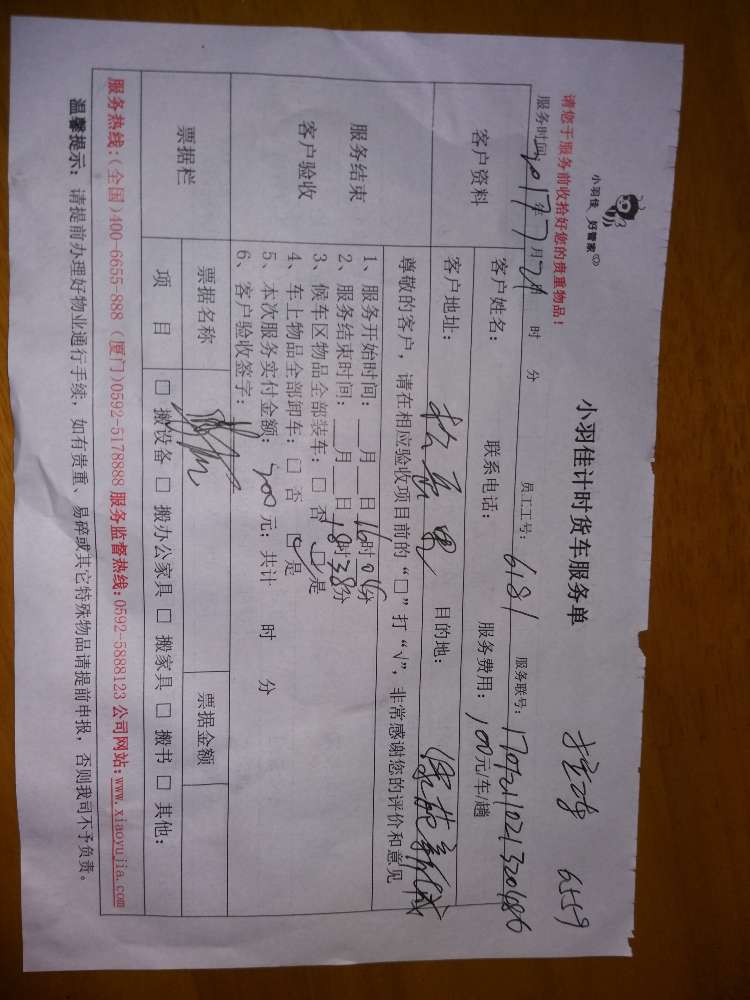 小羽佳 好管家
小羽佳计时货车服务单
6559
请您于服务前收拾好您的贵重物品!
服务时间: 2017年7月21日 时 分 员工工号: 6181 服务联号:
客户资料
客户姓名: 联系电话: 服务费用: 100元/车/趟
客户地址: 目的地:
尊敬的客户，请在相应验收项目前的“□”打“√”，非常感谢您的评价和意见
服务结束
客户验收
1、服务开始时间: __月__日16时06分
2、服务结束时间: __月__日18时38分
3、候车区物品全部装车: □ 否 □ 是
4、车上物品全部卸车: □ 否 □ 是
5、本次服务实付金额: 200元; 共计 时 分
6、客户验收签字:
票据栏
票据名称 票据金额
项 目 □ 搬设备 □ 搬办公家具 □ 搬家具 □ 搬书 □ 其他:
服务热线:(全国)400-6655-888 (厦门)0592-5178888 服务监督热线:0592-5888123 公司网站:www.xiaoyujia.com
温馨提示: 请提前办理好物业通行手续，如有贵重、易碎或其它特殊物品请提前申报，否则我司不予负责。